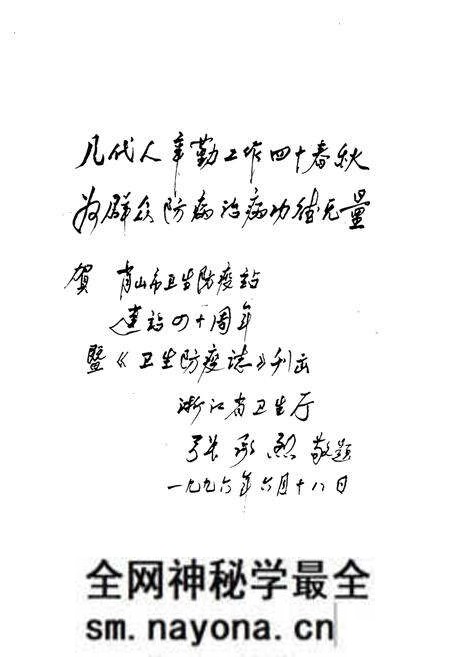 几代人辛勤工作四十春秋
为群众防病治病功德无量
贺 肖山市卫生防疫站
建站四十周年
暨《卫生防疫志》刊出
浙江省卫生厅
张承烈 敬题
一九九六年六月十八日
全网神秘学最全
sm.nayona.cn